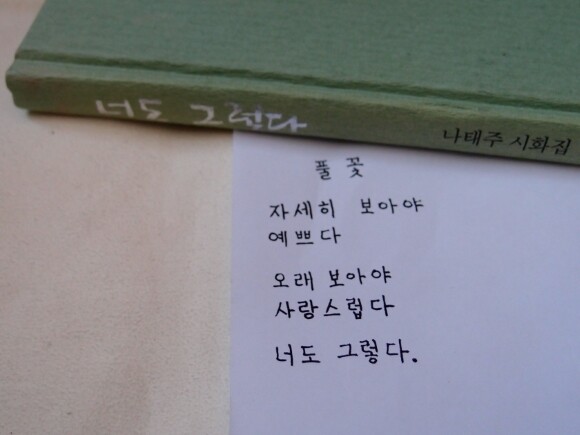 너도 그렇다
나태주 시화집
풀꽃
자세히 보아야
예쁘다
오래 보아야
사랑스럽다
너도 그렇다.